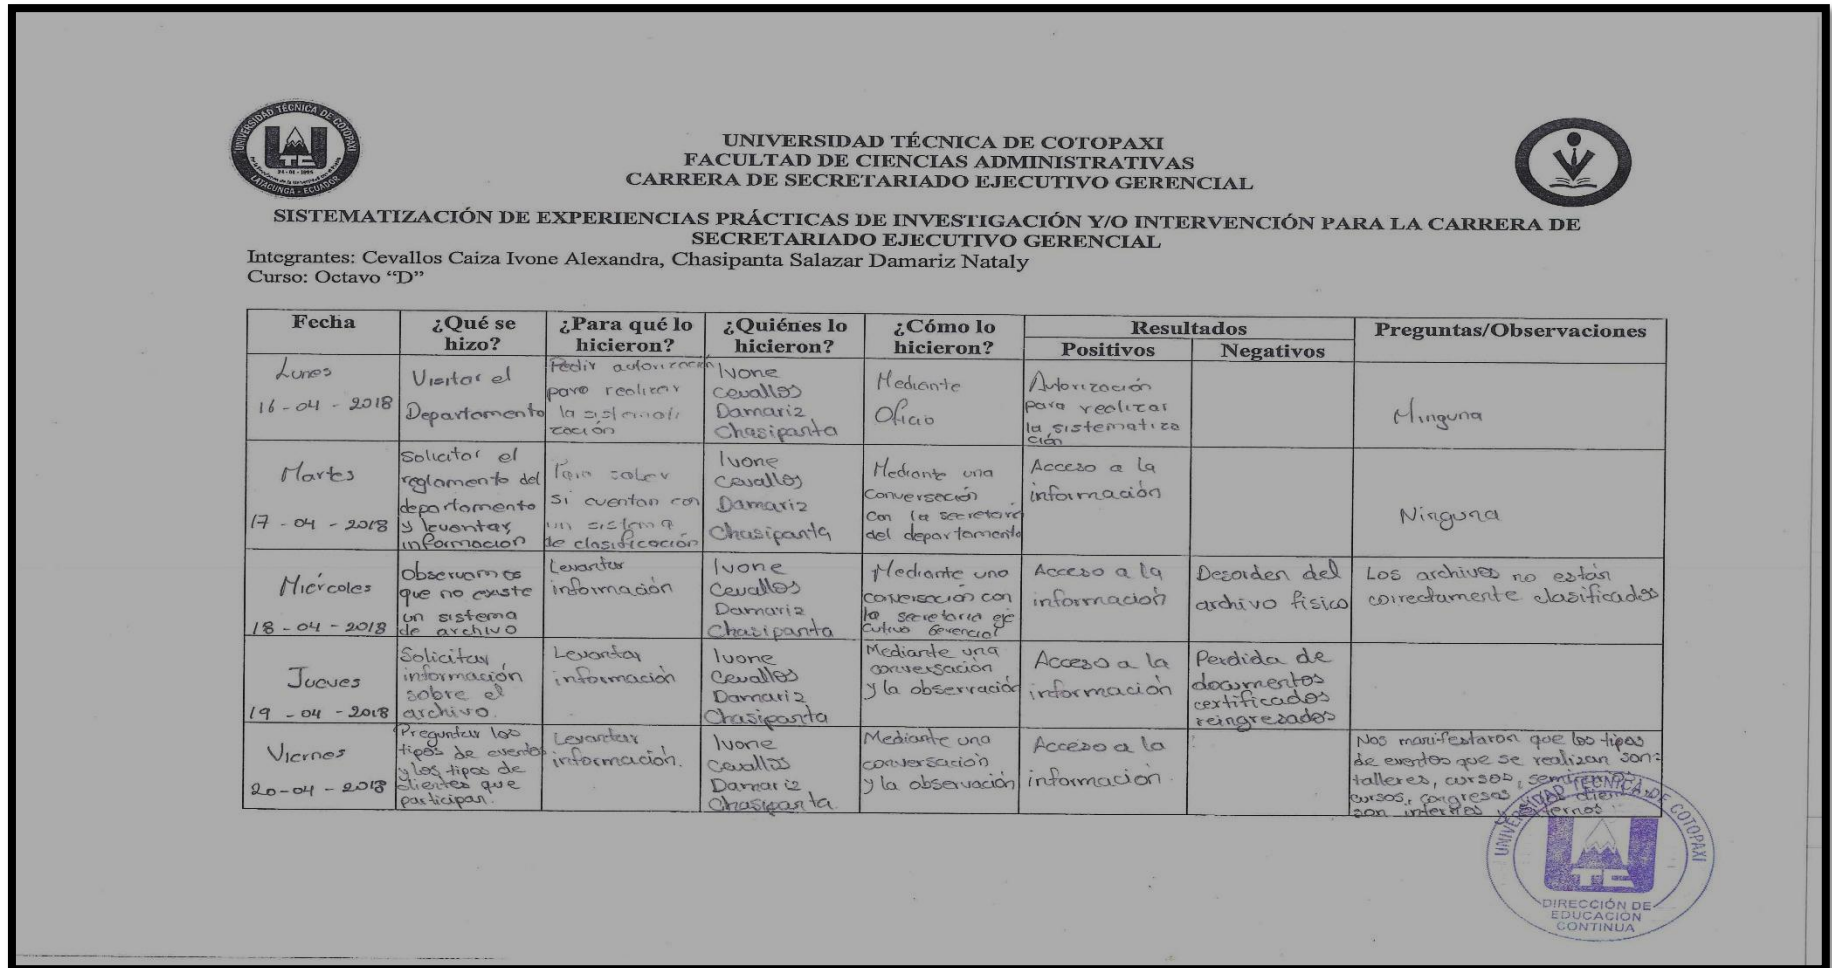 UNIVERSIDAD TÉCNICA DE COTOPAXI
LATACUNGA - ECUADOR
UTC
UNIVERSIDAD TÉCNICA DE COTOPAXI
FACULTAD DE CIENCIAS ADMINISTRATIVAS
CARRERA DE SECRETARIADO EJECUTIVO GERENCIAL
SISTEMATIZACIÓN DE EXPERIENCIAS PRÁCTICAS DE INVESTIGACIÓN Y/O INTERVENCIÓN PARA LA CARRERA DE
SECRETARIADO EJECUTIVO GERENCIAL
Integrantes: Cevallos Caiza Ivone Alexandra, Chasipanta Salazar Damariz Nataly
Curso: Octavo “D”
Fecha
¿Qué se
hizo?
¿Para qué lo
hicieron?
¿Quiénes lo
hicieron?
¿Cómo lo
hicieron?
Resultados
Positivos
Negativos
Preguntas/Observaciones
Lunes
16-04-2018
Visitar el
Departamento
Pedir autorización
para realizar
la sistemati
zación
Ivone
Cevallos
Damariz
Chasipanta
Mediante
Oficio
Autorización
para realizar
la sistematiza
ción
Ninguna
Martes
17-04-2018
Solicitar el
reglamento del
departamento
y levantar
información
Para saber
si cuentan con
un sistema
de clasificación
Ivone
Cevallos
Damariz
Chasipanta
Mediante una
conversación
con la secretaria
del departamento
Acceso a la
información
Ninguna
Miércoles
18-04-2018
Observamos
que no existe
un sistema
de archivo
Levantar
información
Ivone
Cevallos
Damariz
Chasipanta
Mediante una
conversación con
la secretaria eje
cutiva Gerencial
Acceso a la
información
Desorden del
archivo físico
Los archivos no están
correctamente clasificados
Jueves
19-04-2018
Solicitar
información
sobre el
archivo.
Levantar
información
Ivone
Cevallos
Damariz
Chasipanta
Mediante una
conversación
y la observación
Acceso a la
información
Perdida de
documentos
certificados
reingresados
Viernes
20-04-2018
Preguntar los
tipos de eventos
y los tipos de
clientes que
participan.
Levantar
información.
Ivone
Cevallos
Damariz
Chasipanta.
Mediante una
conversación
y la observación
Acceso a la
información.
Nos manifestaron que los tipos
de eventos que se realizan son:
talleres, cursos, seminarios,
cursos, congresos
son internos
UNIVERSIDAD TÉCNICA DE COTOPAXI
UTC
DIRECCIÓN DE
EDUCACIÓN
CONTINUA